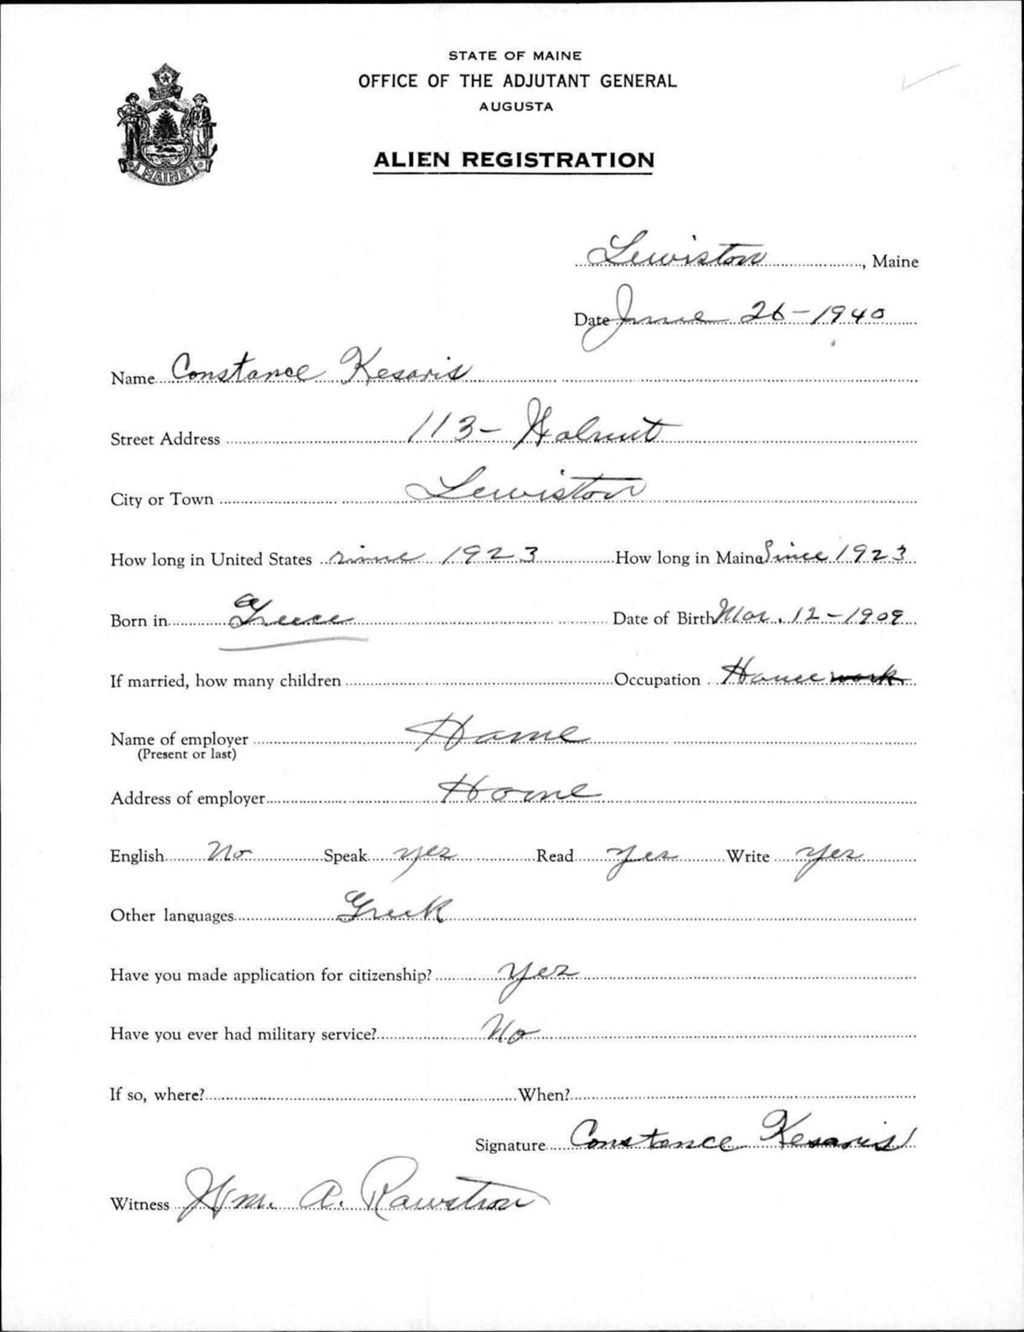 STATE OF MAINE
OFFICE OF THE ADJUTANT GENERAL
AUGUSTA
ALIEN REGISTRATION
MAINE
Lewiston, Maine
Date June 26-1940
Name Constance Kesaris
Street Address 113- Walnut
City or Town Lewiston
How long in United States since 1923 How long in Maine Since 1923
Born in Greece Date of Birth Mar. 12-1909
If married, how many children Occupation House work
Name of employer Home
(Present or last)
Address of employer Home
English No Speak yes Read yes Write yes
Other languages Greek
Have you made application for citizenship? yes
Have you ever had military service? No
If so, where? When?
Signature Constance Kesaris
Witness Wm. A. Rawstron